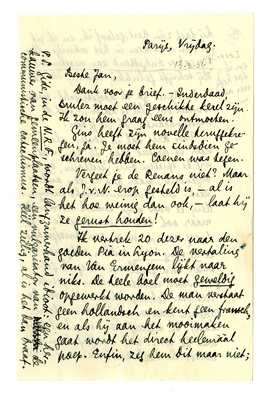 Parijs, Vrijdag.
Beste Jan,
Dank voor je brief. – Inderdaad,
Brulez moet een geschikte kerel zijn.
Ik zou hem graag eens ontmoeten.
Gino heeft zijn novelle herroffekre-
gen, ja. Je moet hem eimbedien ge-
schreven hebben. Coenen was tegen.
Vergeet je de Renans niet? Maar
als J.v.N. erop gesteld is, – al is
het hoe weinig dan ook, – laat hij
ze gerust houden!
Ik vertrek 20 dezer naar den
goeden Pia in Lyon. De vertaling
van Van Ermengem lijkt naar
niks. De heele boel moet geweldig
opgewerkt worden. De man verstaat
geen hollandsch en kent geen fransch,
en als hij aan het mooimaken
gaat wordt het direct heelemaal
poep. Enfin, zeg hem dit maar niet;
P.S. Gide, in de N.R.F., wordt langzamerhand idioot: een her-
kauwer van gemeenplaatsen, een vulgarisator van de
communistische catechismus. Heel zielig, al is het dan braaf.